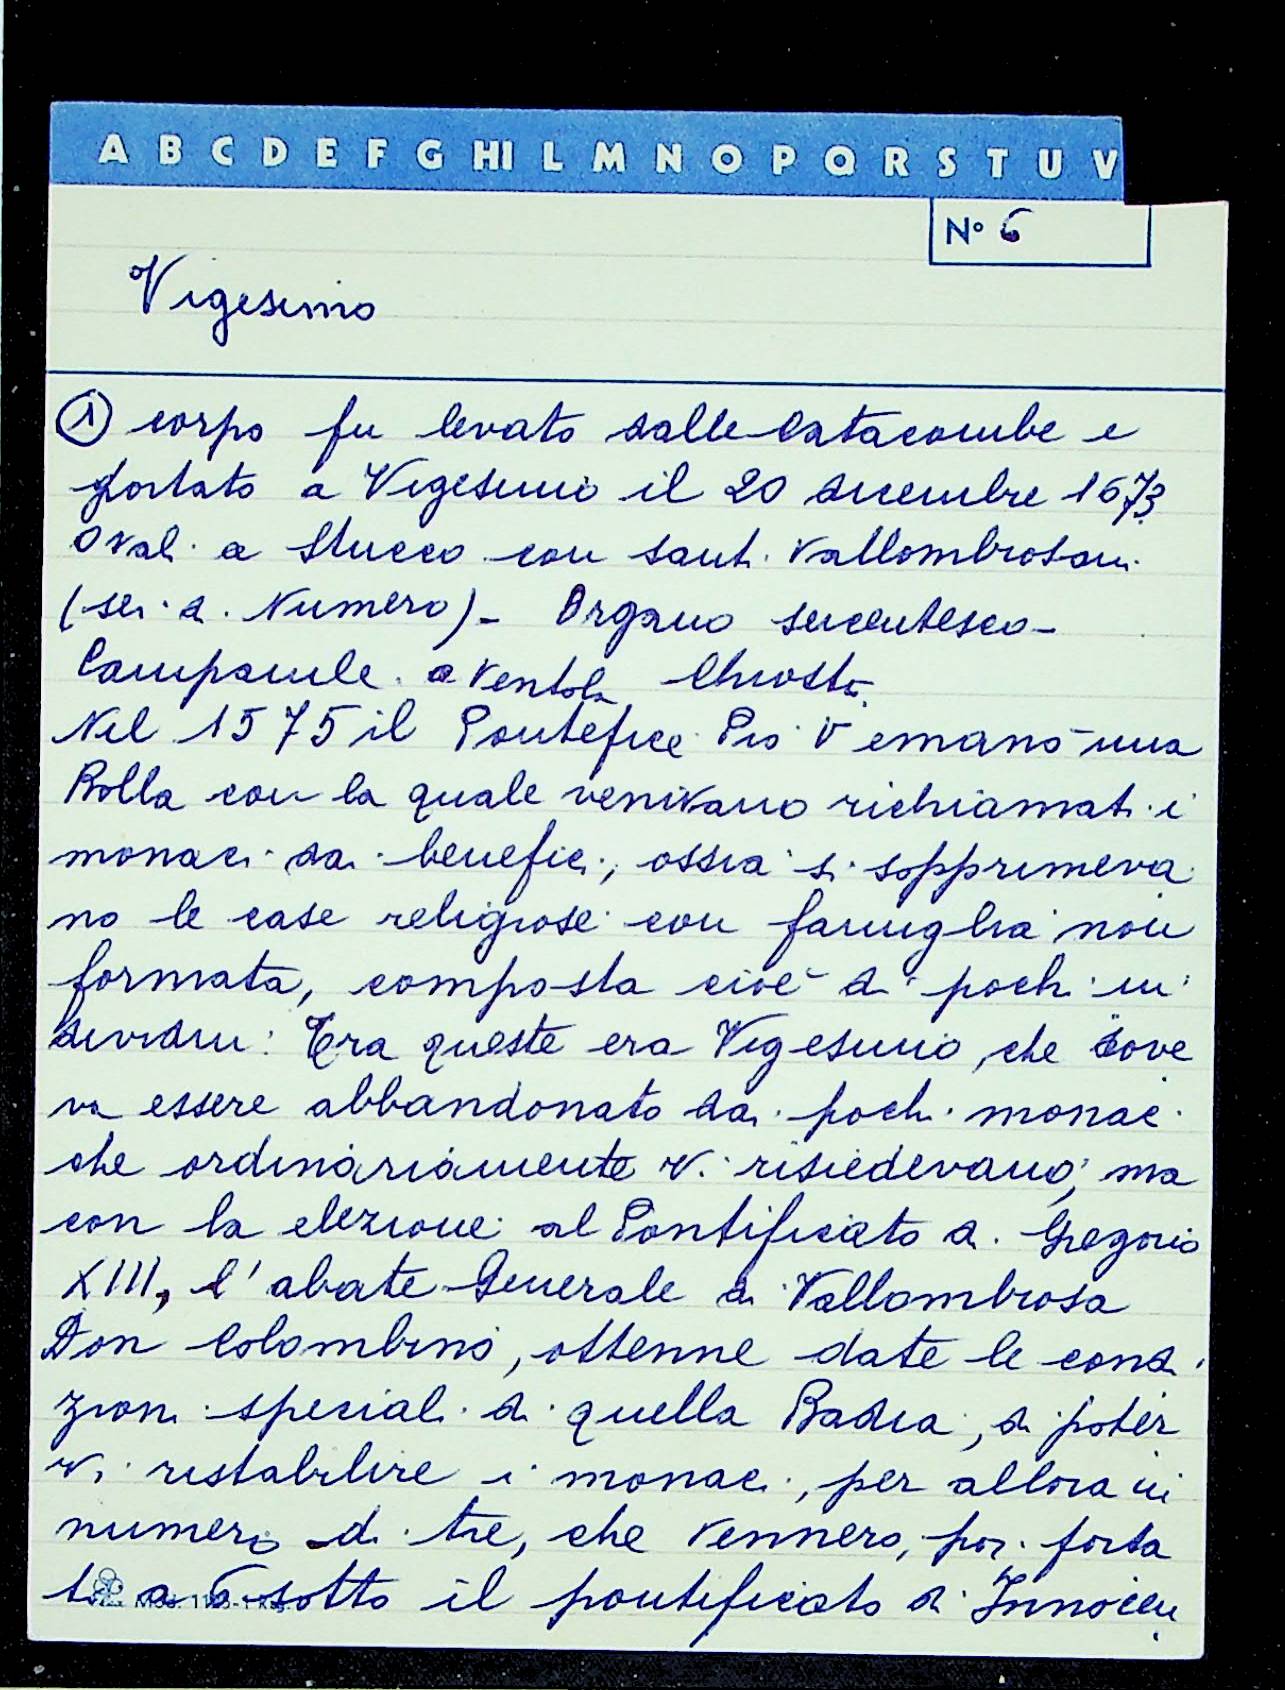 A B C D E F G HI L M N O P Q R S T U V
N° 6
Vigesimo
① corpo fu levato dalle Catacombe e
portato a Vigesimo il 20 dicembre 1673
Ovali a stucco con santi Vallombrosani
(sei di Numero) - Organo seicentesco -
Campanile a ventola Chiostro
Nel 1575 il Pontefice Pio V emanò una
Bolla con la quale venivano richiamati i
monaci dai benefici, ossia si sopprimeva
no le case religiose con famiglia non
formata, composta cioè di pochi in
dividui: Tra queste era Vigesimo, che dove
va essere abbandonato dai pochi monaci
che ordinariamente vi risiedevano, ma
con la elezione al Pontificato di Gregorio
XIII, l'abate Generale di Vallombrosa
Don Colombino, ottenne date le condi
zioni speciali di quella Badia, di poter
vi ristabilire i monaci, per allora in
numero di tre, che vennero, poi porta
ti a 6 sotto il pontificato di Innocen